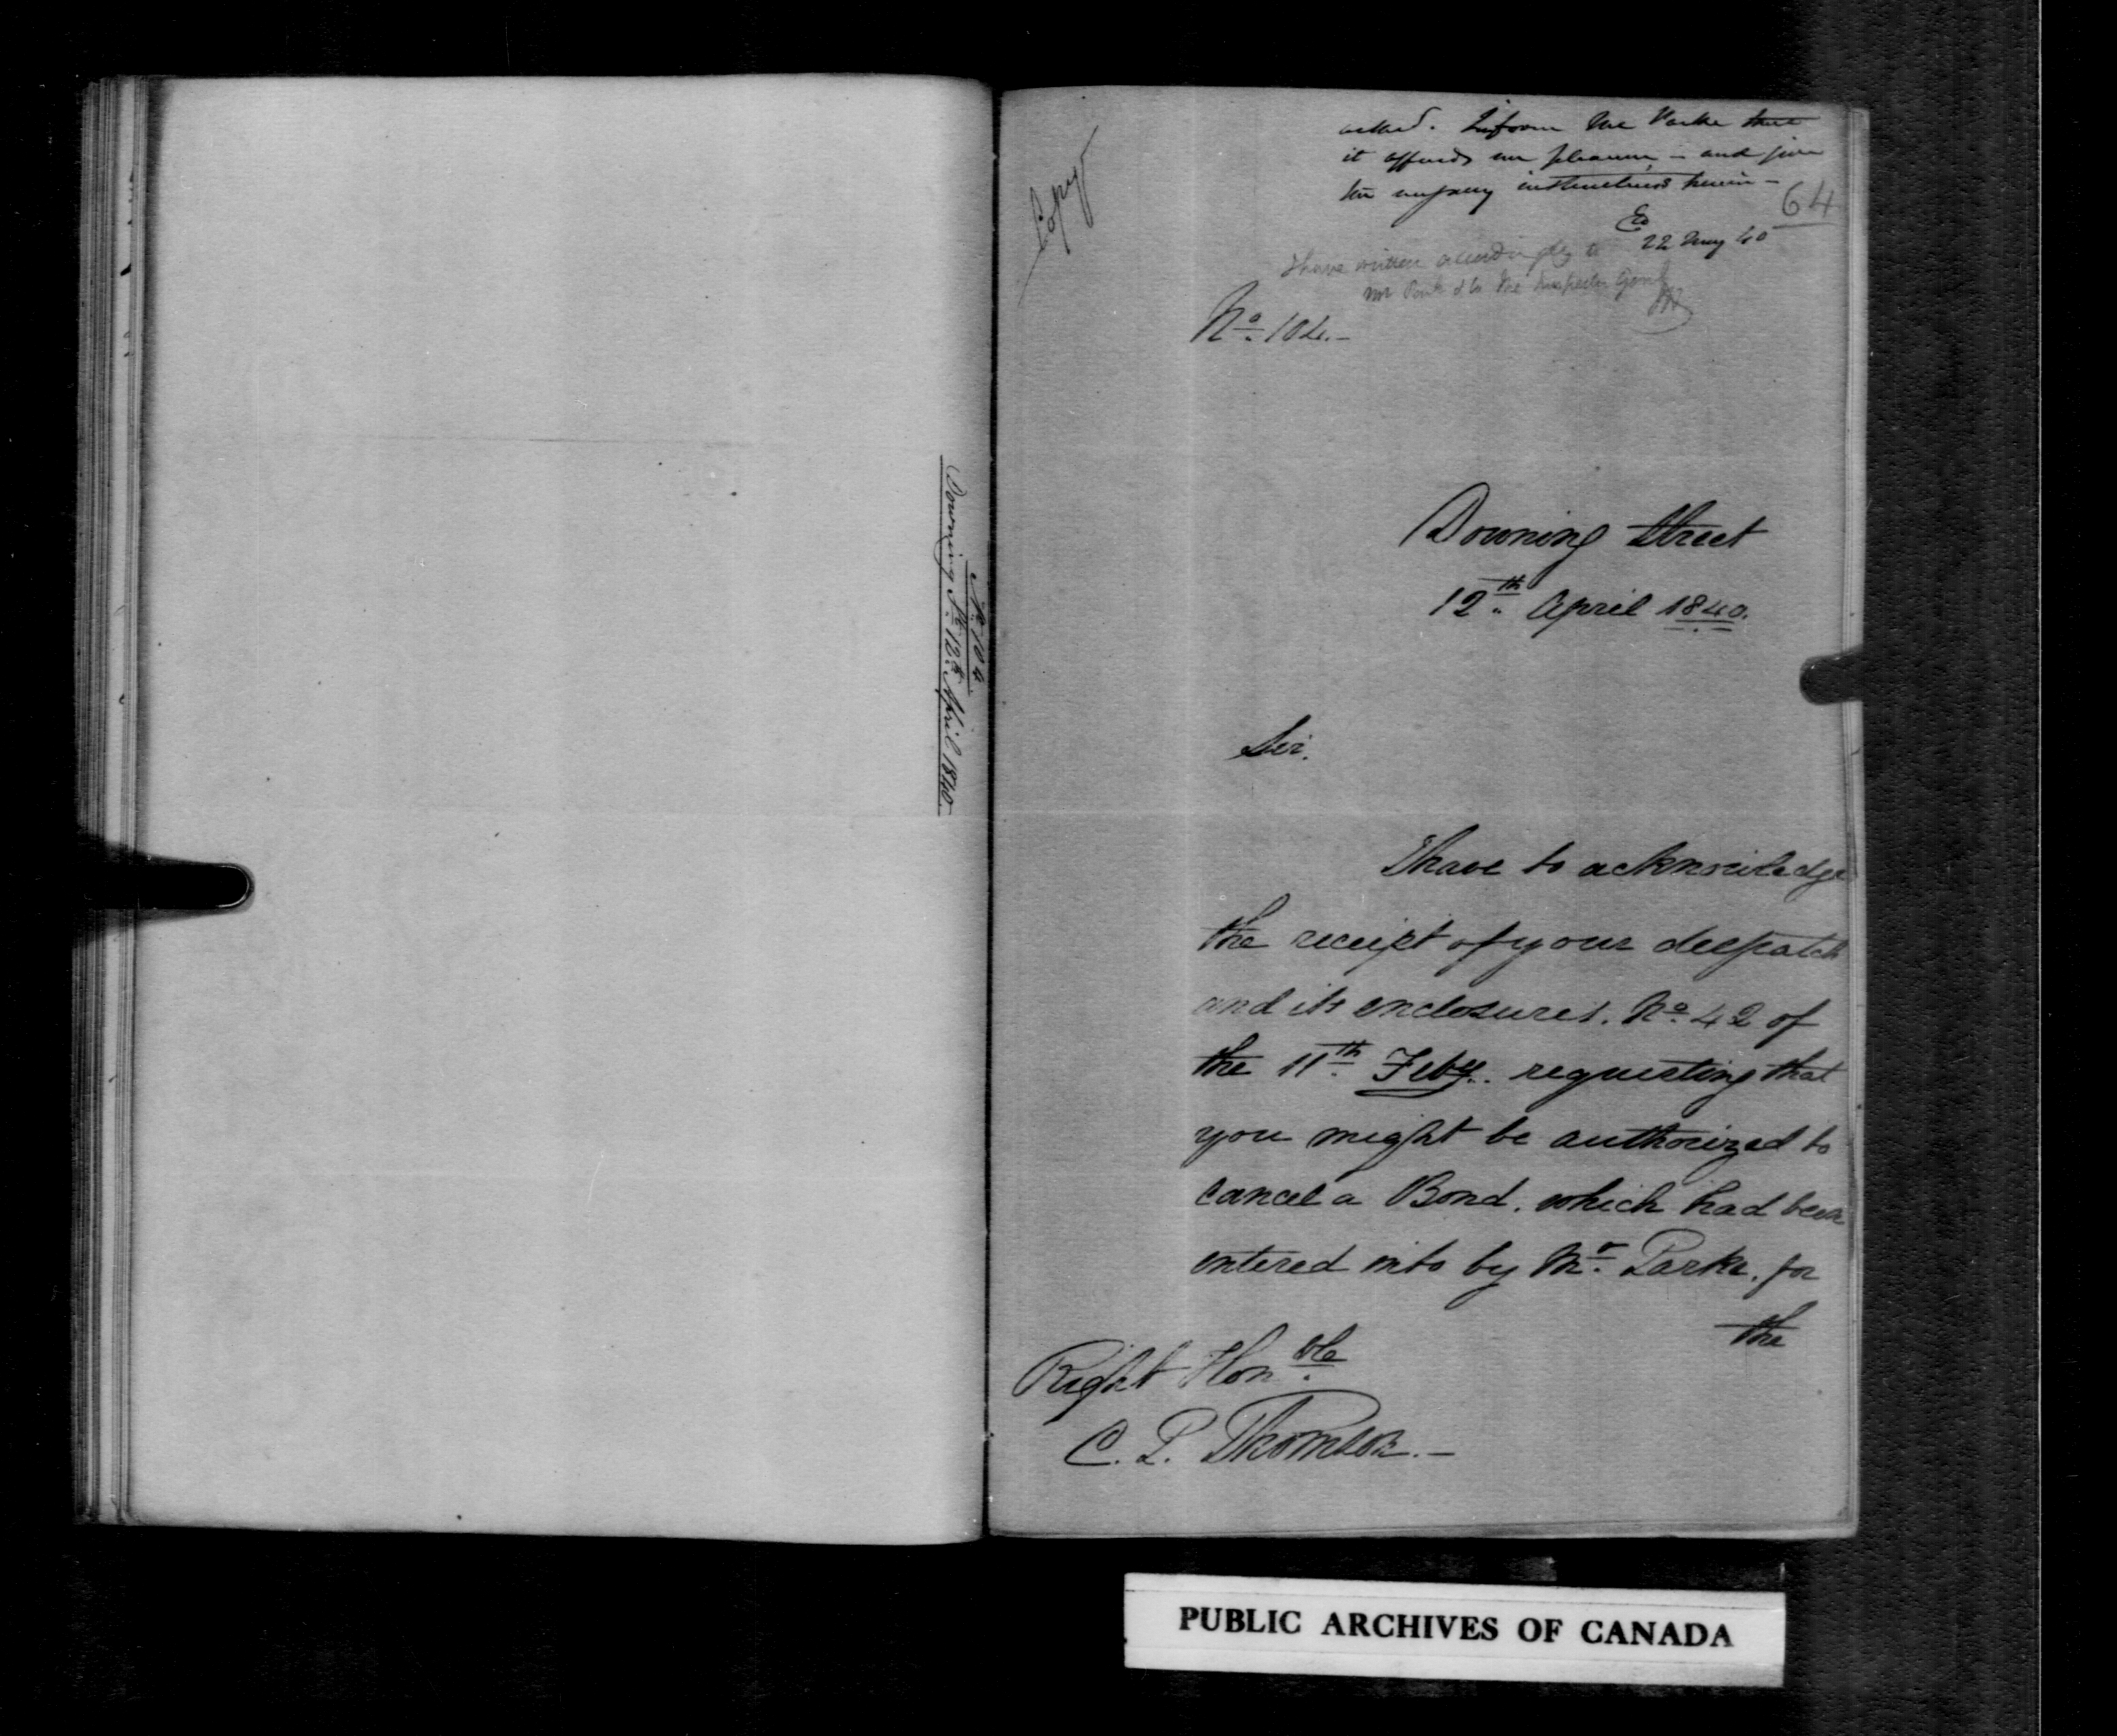 Nº 104
Downing St. 12th April 1840.
Copy
acted. Inform Mr Parke that
it affords me pleasure – and give
the necessary instructions herein –
22 May 40
64
I have written accordingly to
Mr Park & to the Inspector Genl
Nº 104.–
Downing Street
12th April 1840.
Sir.
I have to acknowledge
the receipt of your despatch
and its enclosures. Nº 42 of
the 11th Feby. requesting that
you might be authorized to
cancel a Bond. which had been
entered into by Mr. Parke. for
the
Right Honble
C. P. Thomson.–
PUBLIC ARCHIVES OF CANADA